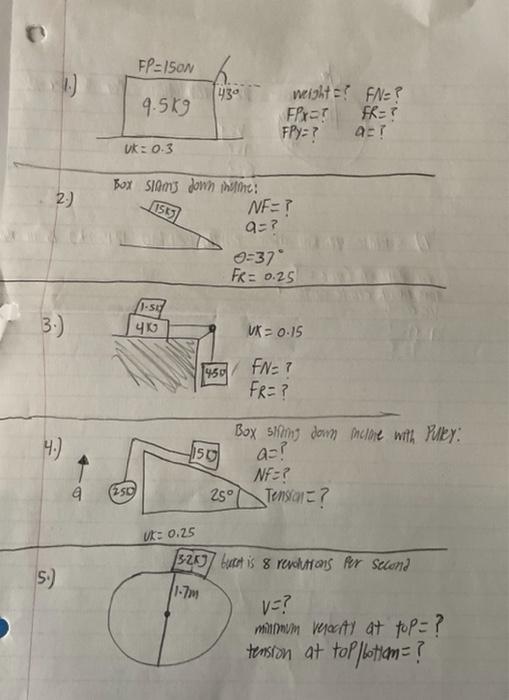 1.)
FP=150N
43°
9.5kg
UK=0.3
weight=? FN=?
FPx=? FR=?
FPy=? a=?
2.)
Box
down incline:
15kg
NF=?
a=?
θ=37°
FR=0.25
3.)
4kg
UK=0.15
FN=?
FR=?
4.)
Box sliding down incline with Pulley:
a
15kg
25°
a=?
NF=?
Tension=?
UK=0.25
5.)
3.2kg
is 8 revolutions per second
1.7m
V=?
minimum velocity at top=?
tension at top/bottom=?